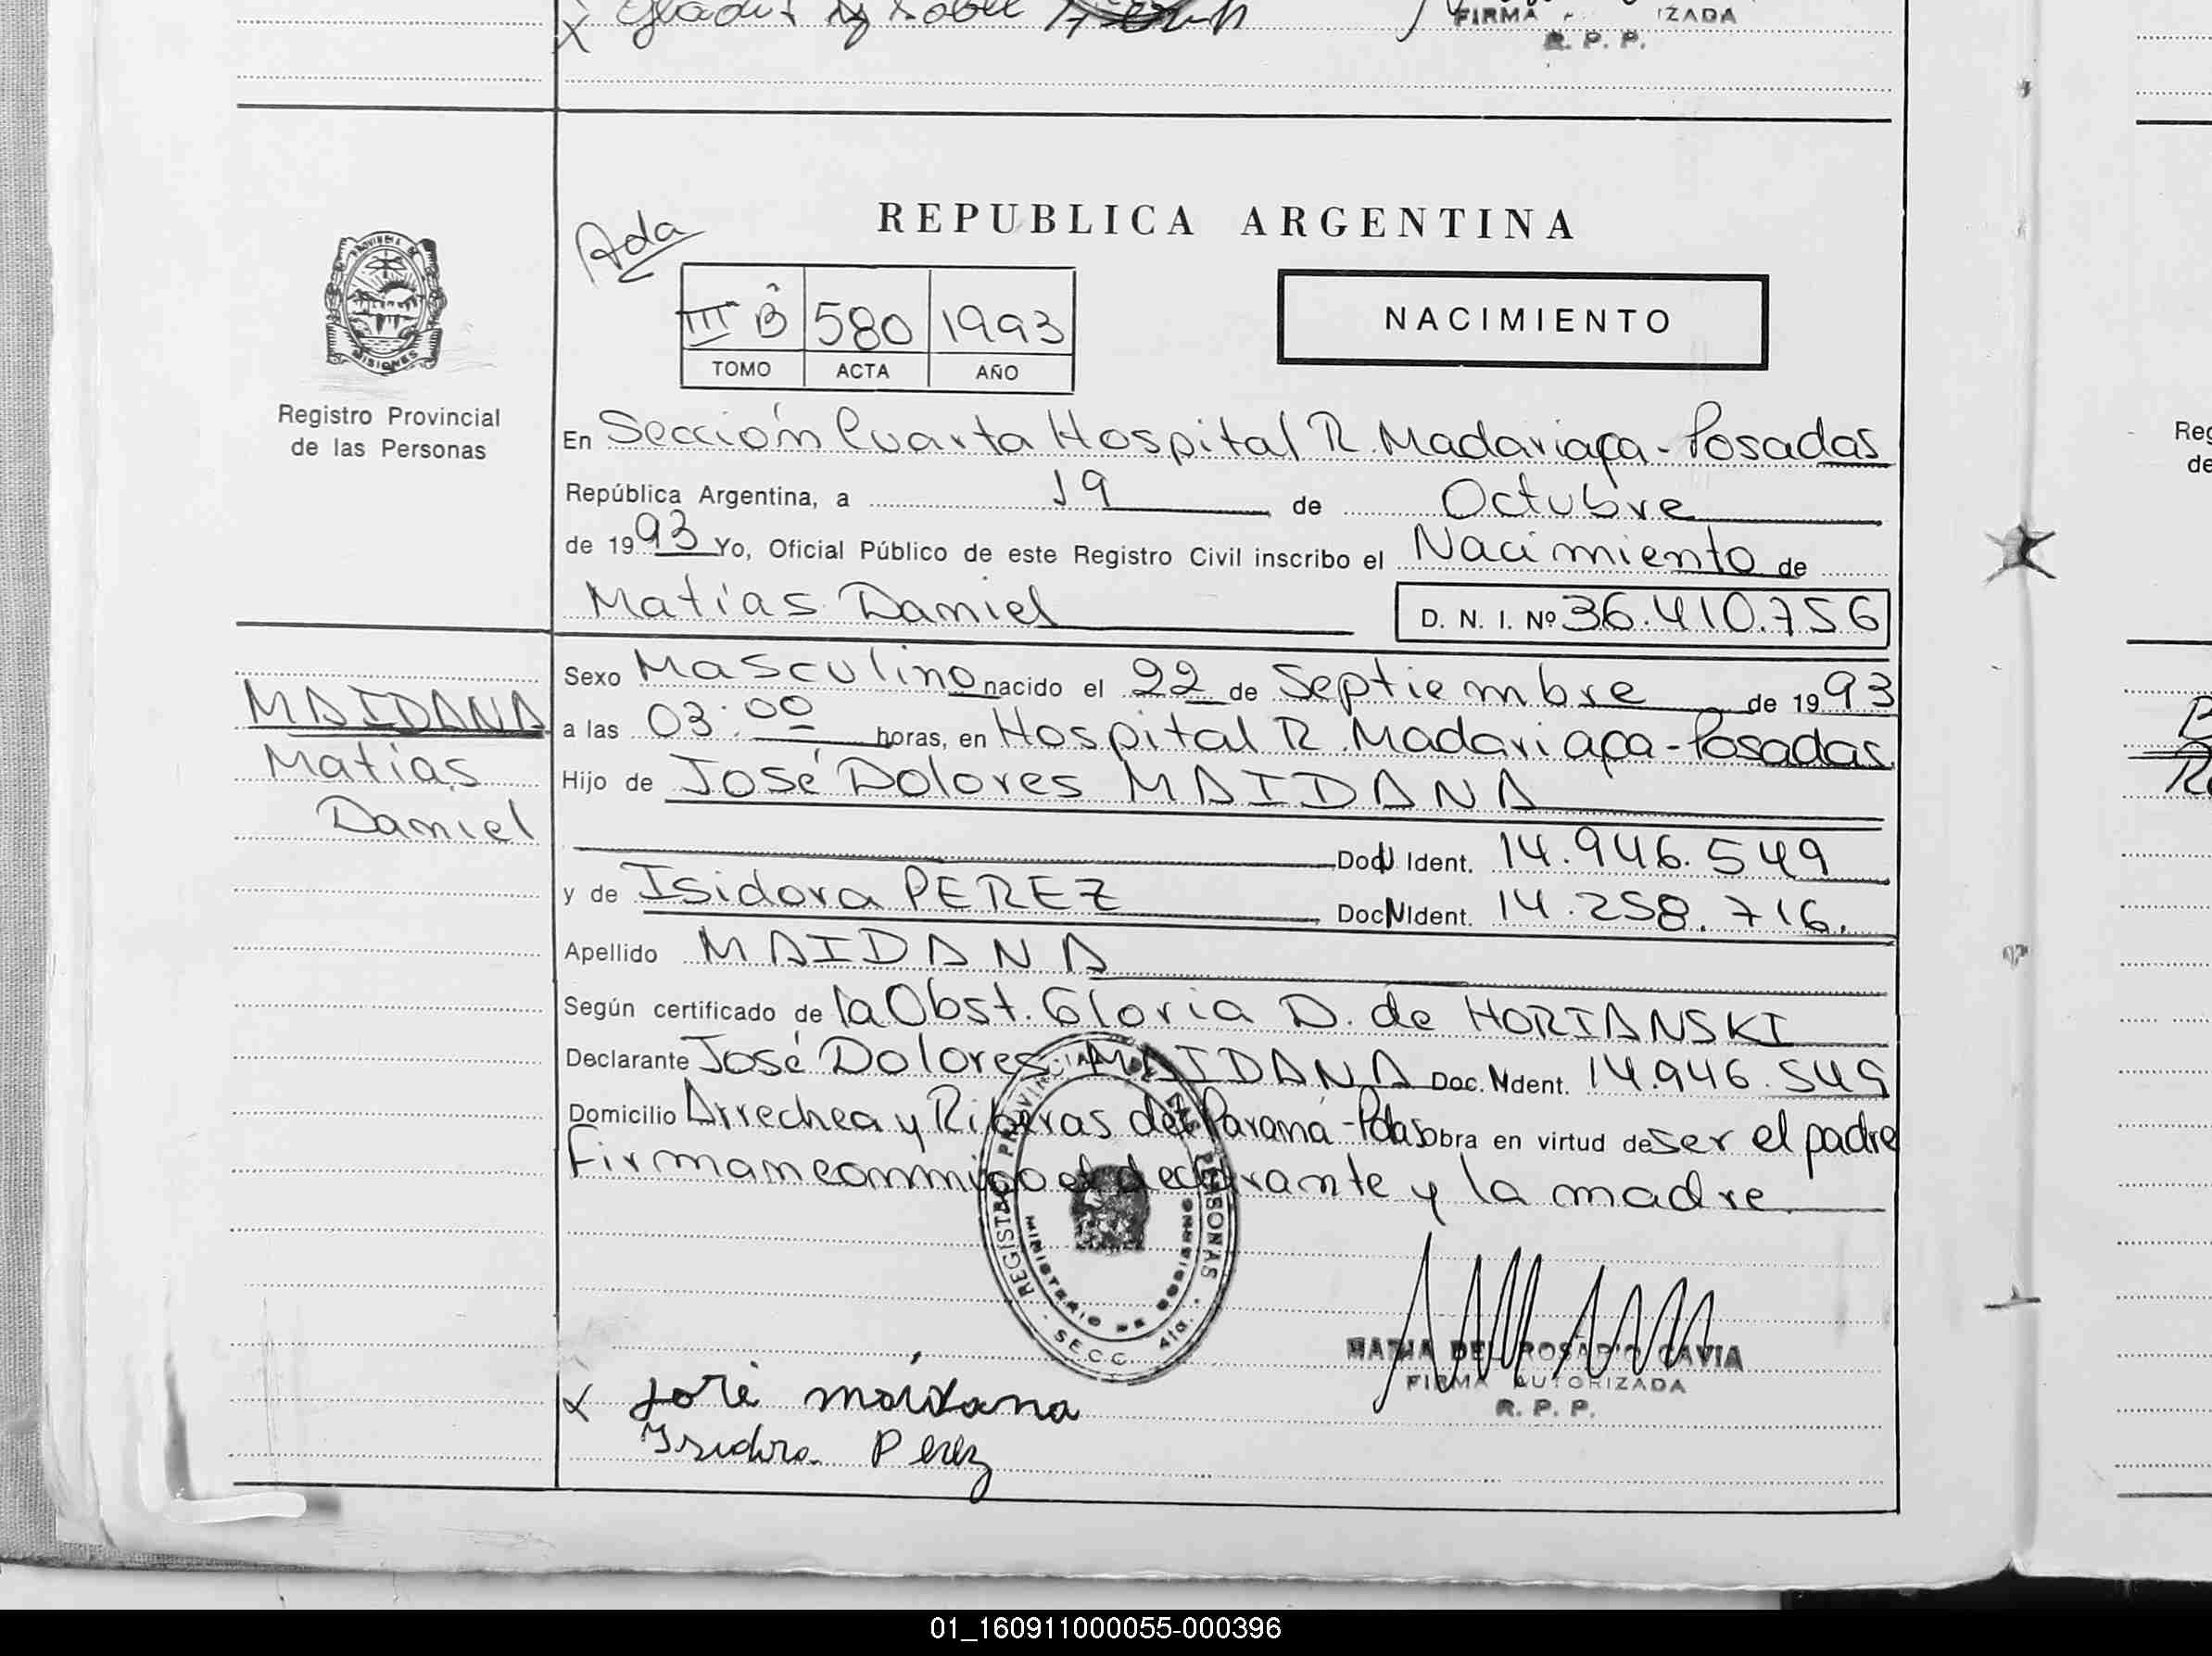 FIRMA IZADA
R. P. P.
REPUBLICA ARGENTINA
Ada
PROVINCIA DE
MISIONES
III B 580 1993
TOMO ACTA AÑO
NACIMIENTO
Registro Provincial
de las Personas
En Sección Cuarta Hospital R. Madariaga - Posadas
República Argentina, a 19 de Octubre
de 1993 Yo, Oficial Público de este Registro Civil inscribo el Nacimiento de
Matías Daniel D. N. I. Nº 36.410.756
Sexo Masculino nacido el 22 de Septiembre de 1993
a las 03:00 horas, en Hospital R. Madariaga - Posadas
Hijo de José Dolores MAIDANA
Doc. N Ident. 14.946.549
y de Isidora PEREZ Doc N Ident. 14.258.716.
Apellido MAIDANA
Según certificado de la Obst. Gloria D. de HORIANSKI
Declarante José Dolores MAIDANA Doc. N Ident. 14.946.549
Domicilio Arrechea y Riberas del Paraná - Pdas obra en virtud de ser el padre
Firman conmigo el declarante y la madre
MAIDANA
Matías
Daniel
REGISTRO PROVINCIAL DE LAS PERSONAS
MINISTERIO DE GOBIERNO
SECC. 4ta.
MARIA DEL ROSARIO GAVIA
FIRMA AUTORIZADA
R. P. P.
x José maidana
Isidora Perez
Reg
de
01_160911000055-000396